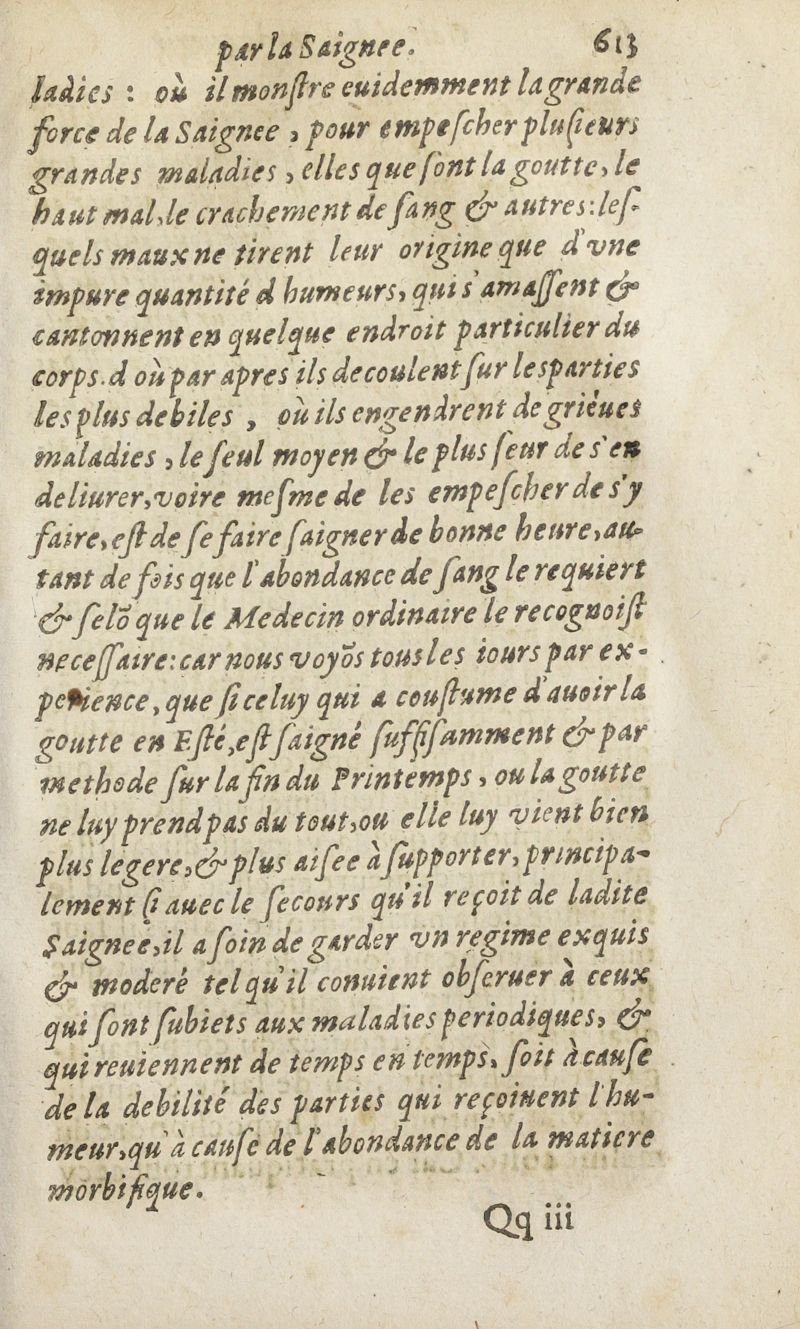 par la Saignee. 613
ladies : où il monſtre euidemment la grande
force de la Saignee , pour empeſcher pluſieurs
grandes maladies , elles que ſont la goutte, le
haut mal, le crachement de ſang & autres: leſ-
quels maux ne tirent leur origine que d'vne
impure quantité d humeurs, qui s'amaſſent &
cantonnent en quelque endroit particulier du
corps. d où par apres ils decoulent ſur les parties
les plus debiles , où ils engendrent de griéues
maladies , le ſeul moyen & le plus ſeur de s'en
deliurer, voire meſme de les empeſcher de s'y
faire, eſt de ſe faire ſaigner de bonne heure, au-
tant de fois que l'abondance de ſang le requiert
& ſelõ que le Medecin ordinaire le recognoiſt
neceſſaire: car nous voyõs tous les iours par ex-
perience, que ſi celuy qui a couſtume d'auoir la
goutte en Eſté, eſt ſaigné ſuffiſamment & par
methode ſur la fin du Printemps , ou la goutte
ne luy prend pas du tout, ou elle luy vient bien
plus legere, & plus aiſee à ſupporter, principa-
lement ſi auec le ſecours qu'il reçoit de ladite
Saignee, il a ſoin de garder vn regime exquis
& moderé tel qu'il conuient obſeruer à ceux
qui ſont ſubiets aux maladies periodiques, &
qui reuiennent de temps en temps, ſoit à cauſe
de la debilité des parties qui reçoiuent l'hu-
meur, qu'à cauſe de l'abondance de la matiere
morbifique.
Qq iii